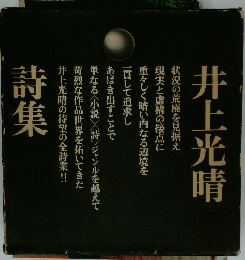 井上光晴
状況の荒廃を見据え
現実と虚構の接点に
重苦しく暗い内なる辺境を
一貫して追求し
あばき出すことで
単なる〈小説〉〈詩〉ジャンルを越えて
苛烈な作品世界を拓いてきた
井上光晴の待望の全詩業!!
詩集